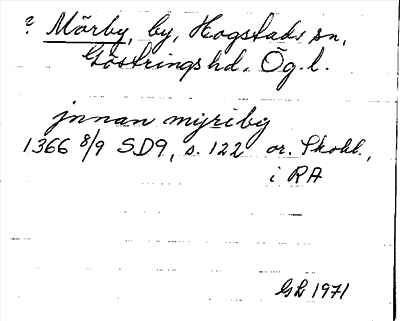 ? Mörby, by, Hogstads sn,
Göstrings hd. Ög. l.
jnnan myriby
1366 8/9 SD9, s. 122 or. Skohl.,
i RA
GL 1971